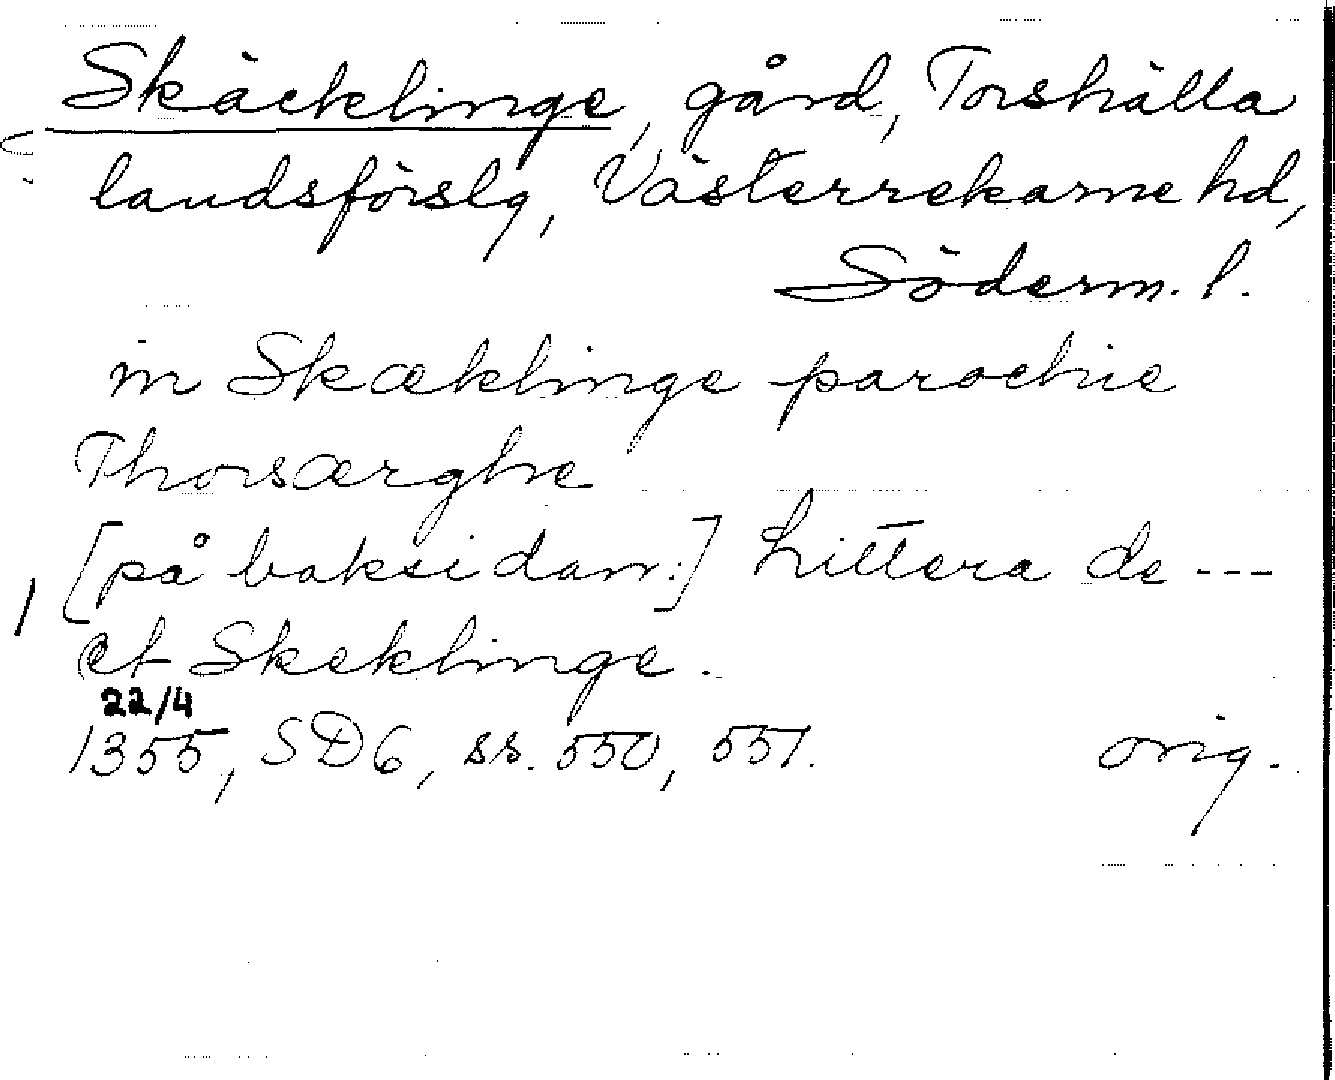 Skäcklinge, gård, Torshälla
landsförslg, Västerrekarne hd,
Söderm. l.
in Skæklinge parochie
Thorsærghe
[på baksidan:] Littera de ---
et Skeklinge.
22/4
1355, SD6, ss. 550, 551. orig.